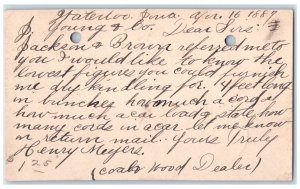 Waterloo, Iowa Apr. 16 1889
Young & Co. Dear Sirs:
Jackson & Brown referred me to
you I would like to know the
lowest figures you could furnish
me dry kindling for. 4 feet long
in bunches how much a cord &
how much a car load & state how
many cords in a car let me know
in return mail. Yours Truly
Henry Meyers.
125 (coal & Wood Dealer)